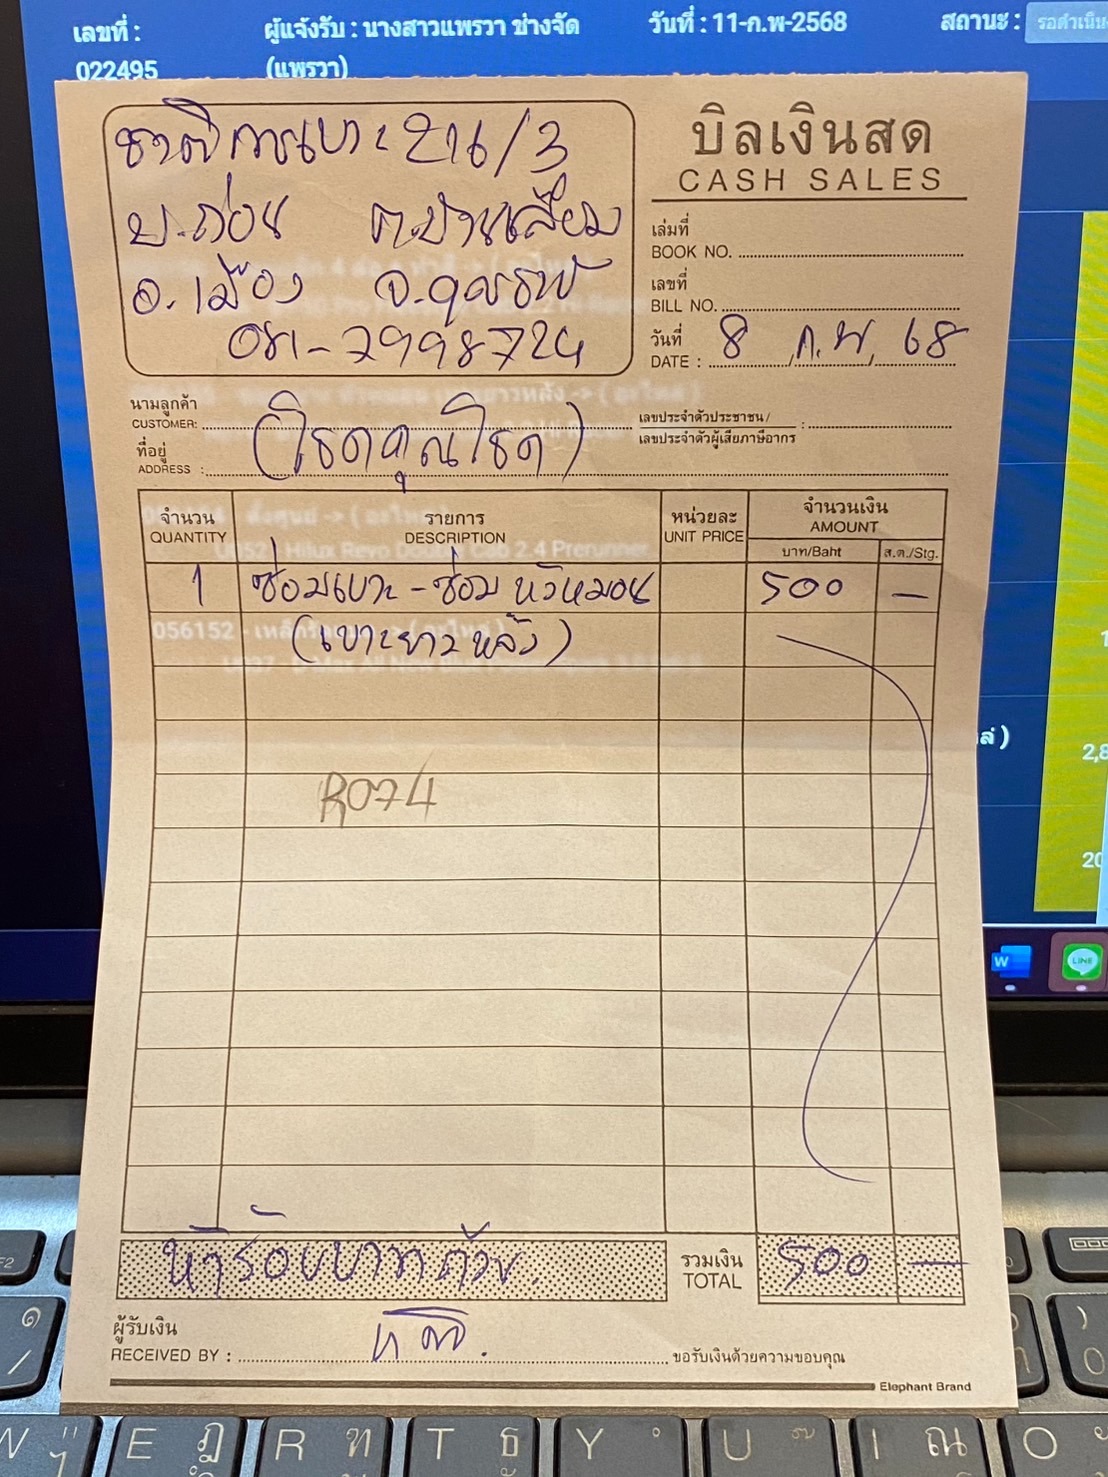 เลขที่ :
022495
ผู้แจ้งรับ : นางสาวแพรวา ช่างจัด
(แพรวา)
วันที่ : 11-ก.พ-2568
สถานะ :
รอดำเนิน
216/3
อ.เมือง จ.อุดรธานี
บิลเงินสด
CASH SALES
เล่มที่
BOOK NO.
เลขที่
BILL NO.
วันที่
DATE : 8 ก.พ. 68
นามลูกค้า
CUSTOMER:
(โชคคูณโชค)
ที่อยู่
ADDRESS :
เลขประจำตัวประชาชน /
เลขประจำตัวผู้เสียภาษีอากร :
จำนวน รายการ หน่วยละ จำนวนเงิน
QUANTITY DESCRIPTION UNIT PRICE AMOUNT
บาท/Baht ส.ต./Stg.
Hilux Revo Double Cab 2.4 Prerunner
1 ซ่อมเบาะ - ซ่อม หัวหมอน 500 –
(เบาะยาวหลัง)
056152
R074
ล่ )
2,8
20
ห้าร้อยบาทถ้วน.
รวมเงิน
TOTAL 500 –
ผู้รับเงิน
RECEIVED BY :
ขอรับเงินด้วยความขอบคุณ
Elephant Brand
W
LINE
F2
E ฎ R ฑ T ธ Y U I ณ O